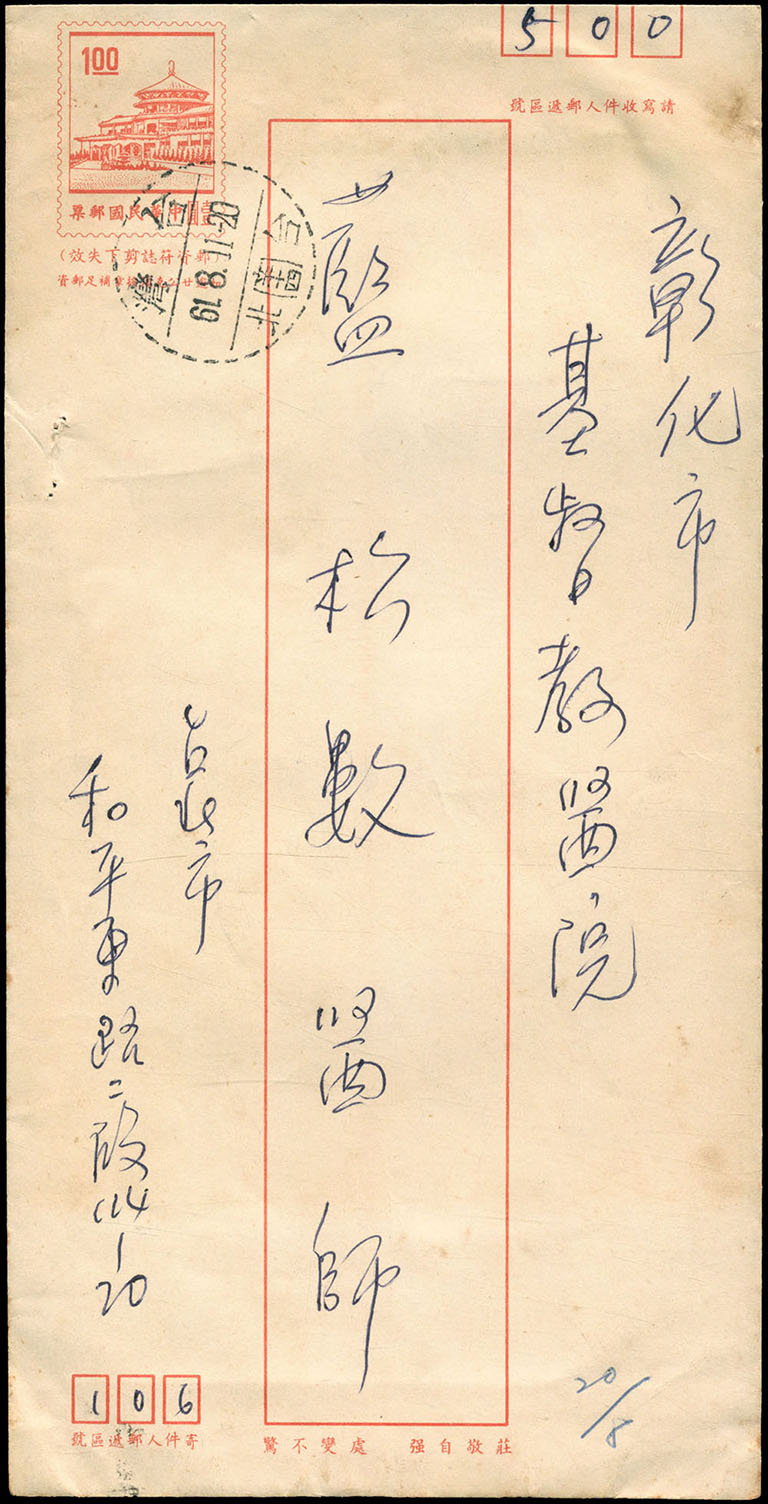 500
請寫收件人郵遞區號
彰化市
基督教醫院
藍松數醫師
台北市
和平東路二段114-20
106
寄件人郵遞區號
莊敬自強 處變不驚
1.00
壹圓中華民國郵票
(郵資符誌剪下失效)
台灣
61.8.11-20
台北
20/8